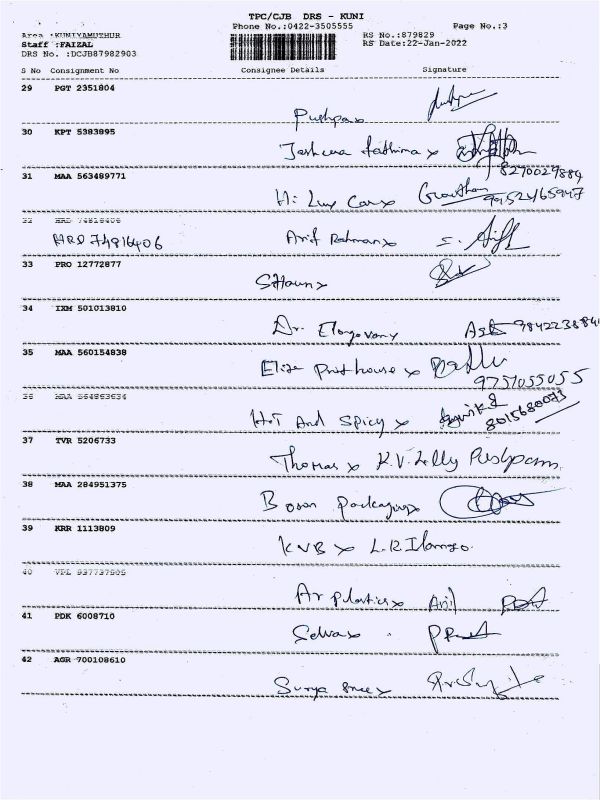 TPC/CJB DRS - KUNI
Phone No.:0422-3505555 Page No.:3
Area :KUNIYAMUTHUR RS No.:879829
Staff :FAIZAL RS Date:22-Jan-2022
DRS No. :DCJB87982903
S No Consignment No Consignee Details Signature
29 PGT 2351804
Pushpax
30 KPT 5383895
Jasheena Fathima x
8270029884
31 MAA 563489771
Hi Lux Carx Gowtham 9952465947
32 HRD 74816406
HRD 74816406 Arif Rahmanx
33 PRO 12772877
34 IXM 501013810
Dr. Elangovanx
35 MAA 560154838
Elite Printhouse x
9751055055
36 MAA 564863634
Hot And Spicy x 8015680073
37 TVR 5206733
Thomas x K.V. Lilly Pushpam
38 MAA 284951375
39 KRR 1113809
KVB x L.R Ilango
40
Ar plasticx Anil
41 PDK 6008710
Selvax
42 AGR 700108610
Surya sree x